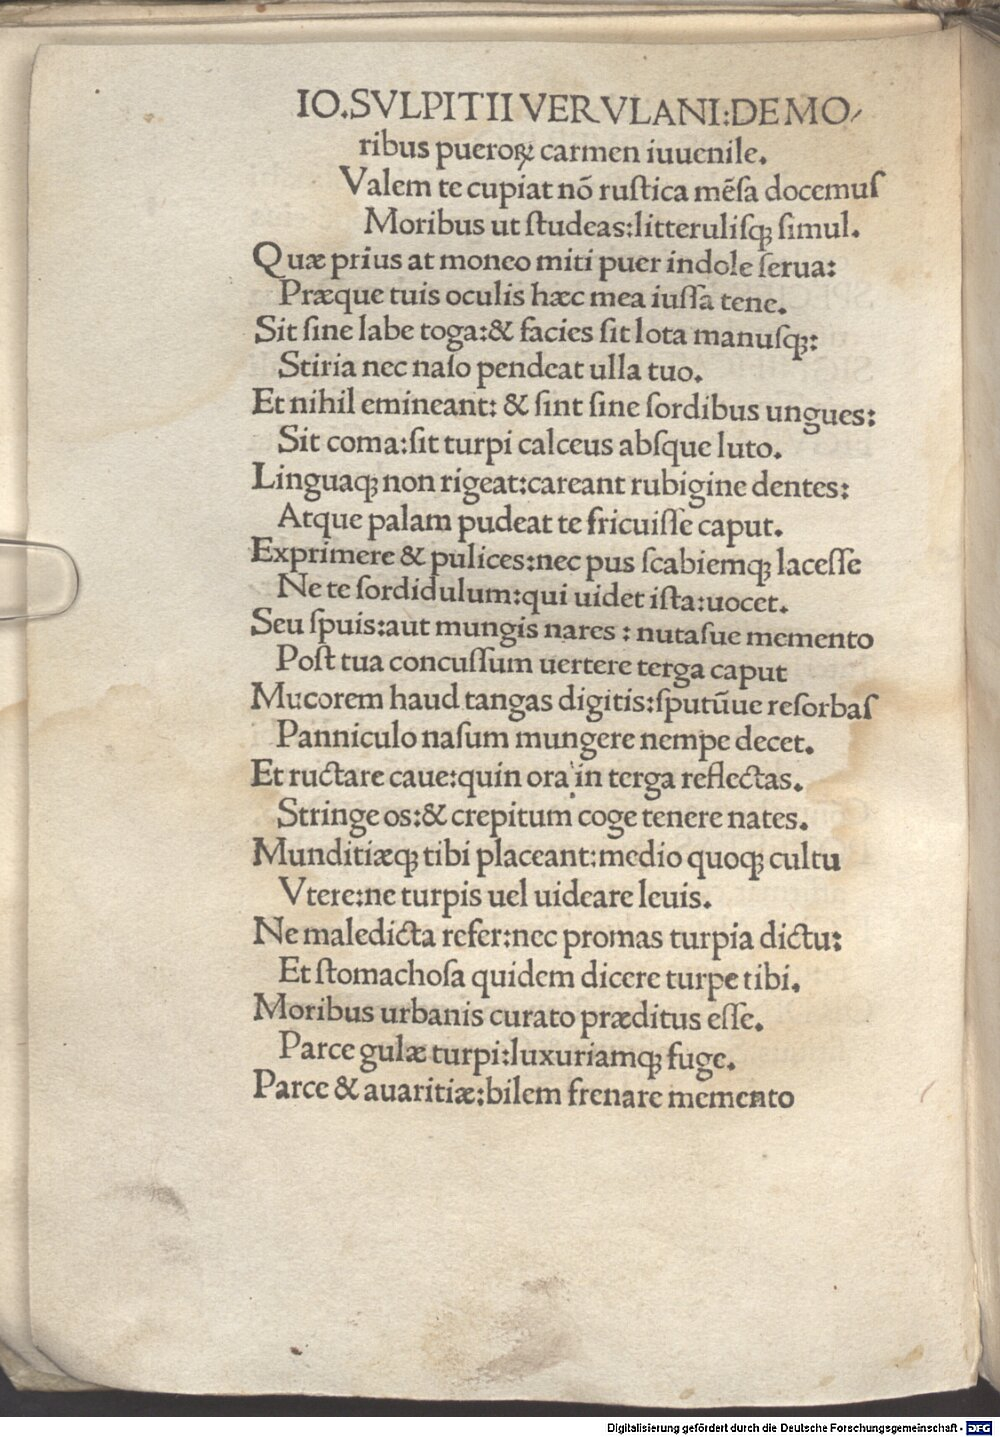 IO.SVLPITII VERVLANI:DE MO-
ribus pueroꝝ carmen iuuenile.
Valem te cupiat nō ruſtica mēſa docemuſ
Moribus ut ſtudeas:litteruliſqꝫ ſimul.
Quæ prius at moneo miti puer indole ſerua:
Præque tuis oculis hæc mea iuſſa tene.
Sit ſine labe toga:& facies ſit lota manuſqꝫ:
Stiria nec naſo pendeat ulla tuo.
Et nihil emineant: & ſint ſine ſordibus ungues:
Sit coma:ſit turpi calceus abſque luto.
Linguaqꝫ non rigeat:careant rubigine dentes:
Atque palam pudeat te fricuiſſe caput.
Exprimere & pulices:nec pus ſcabiemqꝫ laceſſe
Ne te ſordidulum:qui uidet iſta:uocet.
Seu ſpuis:aut mungis nares : nutaſue memento
Poſt tua concuſſum uertere terga caput
Mucorem haud tangas digitis:ſputūue reſorbaſ
Panniculo naſum mungere nempe decet.
Et ructare caue:quin ora in terga reflectas.
Stringe os:& crepitum coge tenere nates.
Munditiæqꝫ tibi placeant:medio quoqꝫ cultu
Vtere:ne turpis uel uideare leuis.
Ne maledicta refer:nec promas turpia dictu:
Et ſtomachoſa quidem dicere turpe tibi.
Moribus urbanis curato præditus eſſe.
Parce gulæ turpi:luxuriamqꝫ fuge.
Parce & auaritiæ:bilem frenare memento
Digitalisierung gefördert durch die Deutsche Forschungsgemeinschaft - DFG